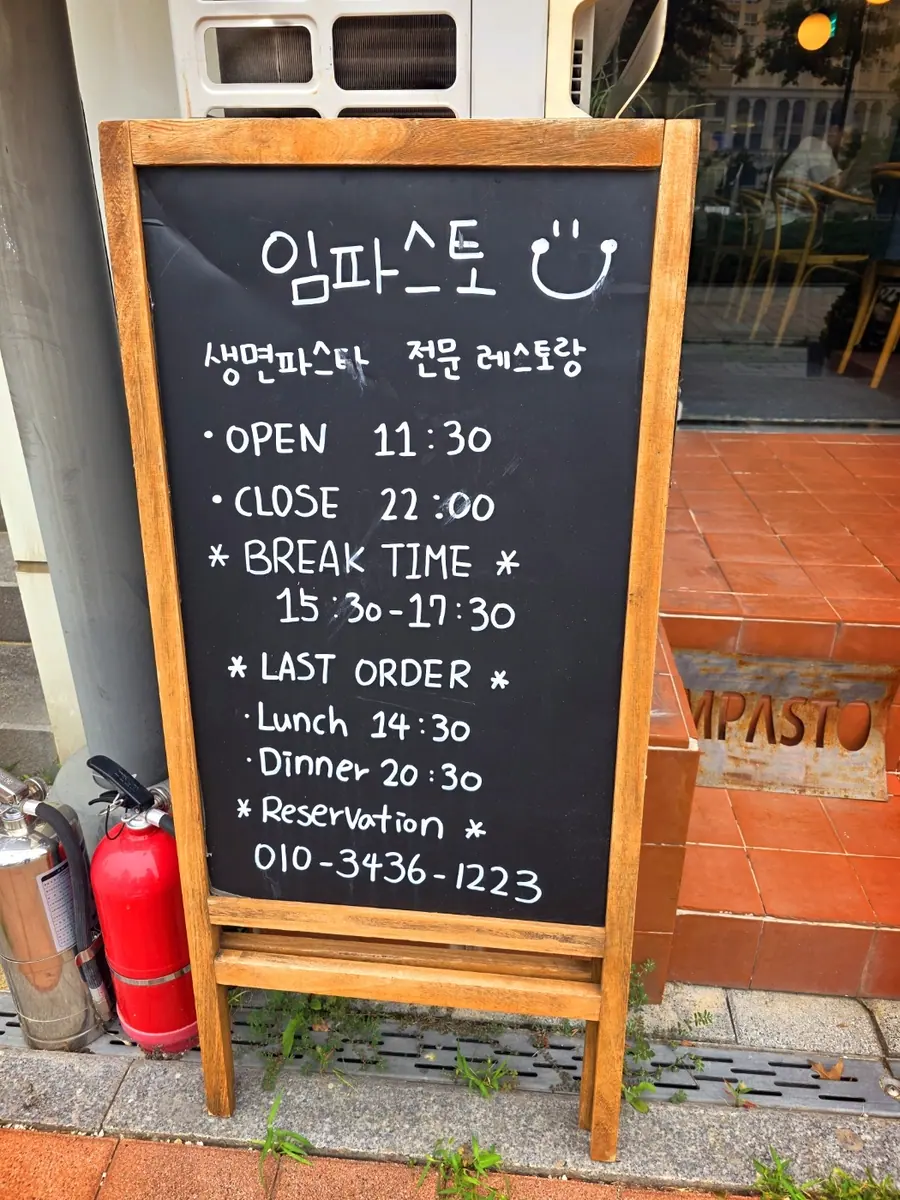 임파스토
생면파스타 전문 레스토랑
· OPEN 11:30
· CLOSE 22:00
* BREAK TIME *
15:30-17:30
* LAST ORDER *
· Lunch 14:30
· Dinner 20:30
* Reservation *
010-3436-1223
MPASTO